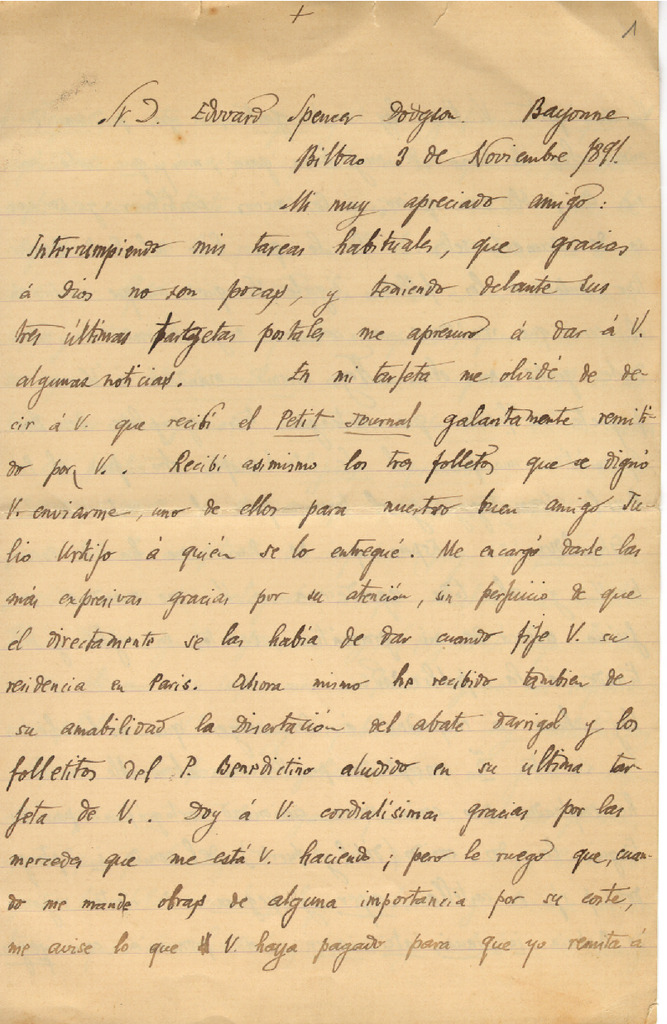 +
1
Sr. D. Edward Spencer Dodgson. Bayonne
Bilbao 3 de Noviembre 1891.
Mi muy apreciado amigo:
Interrumpiendo mis tareas habituales, que gracias
á Dios no son pocas, y teniendo delante sus
tres últimas tarjetas postales me apresuro á dar á V.
algunas noticias. En mi tarjeta me olvidé de de-
cir á V. que recibí el Petit Journal galantemente remiti-
do por V.. Recibí asimismo los tres folletos que se dignó
V. enviarme, uno de ellos para nuestro buen amigo Ju-
lio Urkijo á quién se lo entregué. Me encargó darle las
más expresivas gracias por su atención, sin perjuicio de que
él directamente se las había de dar cuando fije V. su
residencia en Paris. Ahora mismo he recibido tambien de
su amabilidad la Disertación del abate Darrigol y los
folletitos del P. Benedictino aludido en su última tar-
jeta de V.. Doy á V. cordialísimas gracias por las
mercedes que me está V. haciendo; pero le ruego que, cuan-
do me mande obras de alguna importancia por su coste,
me avise lo que V. haya pagado para que yo remita á